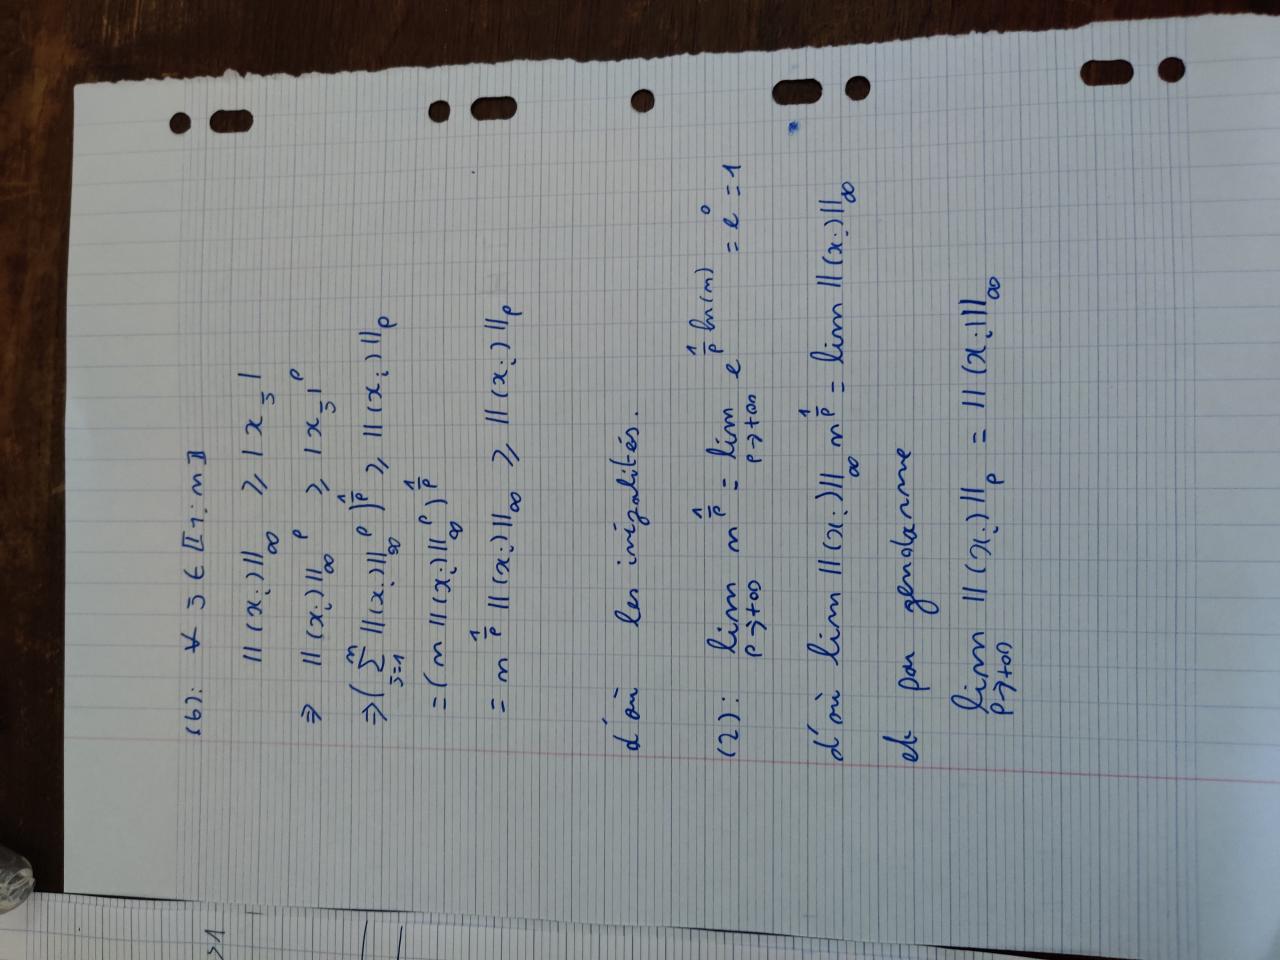 (b): ∀ j ∈ ⟦1; n⟧
||(x_i)||_∞ ⩾ |x_j|
⇒ ||(x_i)||_∞^p ⩾ |x_j|^p
⇒ (∑_{j=1}^{n} ||(x_i)||_∞^p)^{1/p} ⩾ ||(x_i)||_p
= (n ||(x_i)||_∞^p)^{1/p}
= n^{1/p} ||(x_i)||_∞ ⩾ ||(x_i)||_p
d'où les inégalités.
(2): lim_{p→+∞} n^{1/p} = lim_{p→+∞} e^{1/p ln(n)} = e^0 = 1
d'où lim ||(x_i)||_∞ n^{1/p} = lim ||(x_i)||_∞
et par gendarme
lim_{p→+∞} ||(x_i)||_p = ||(x_i)||_∞
>1